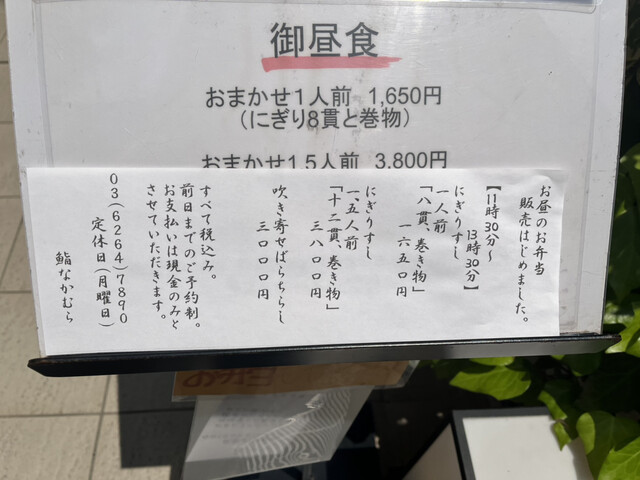 御昼食
おまかせ1人前 1,650円
（にぎり8貫と巻物）
おまかせ1.5人前 3,800円
お昼のお弁当
販売はじめました。
【11時30分〜
13時30分】
にぎりすし
一人前
「八貫、巻き物」
一六五〇円
にぎりすし
一、五人前
「十二貫、巻き物」
三八〇〇円
吹き寄せばらちらし
三〇〇〇円
すべて税込み。
前日までのご予約制。
お支払いは現金のみと
させていただきます。
03(6264)7890
定休日(月曜日)
鮨なかむら